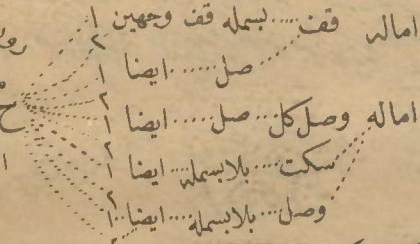 اماله قف بسمله قف وجهين ١
٢
صل ايضا ١
٢
اماله وصل كل صل ايضا ١
٢
سكت بلا بسمله ايضا ١
٢
وصل بلا بسمله ايضا ١